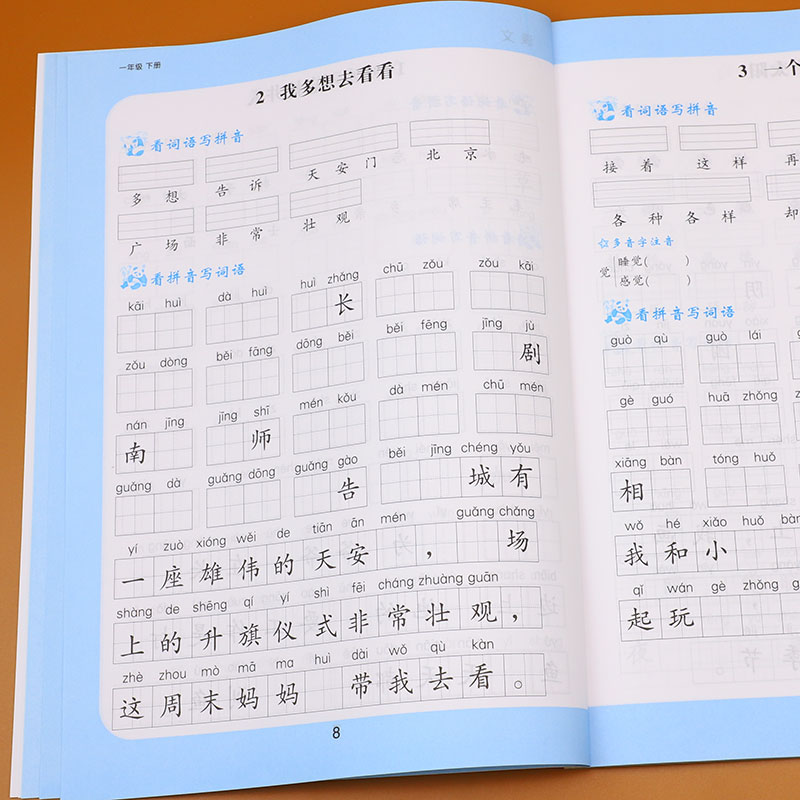 一年级 下册
2 我多想去看看
看词语写拼音
多想 告诉 天安门 北京
广场 非常 壮观
看拼音写词语
kāi huì dà huì huì zhǎng chū zǒu zǒu kāi
长
zǒu dòng běi fāng dōng běi běi fēng jīng jù
剧
nán jīng jīng shī mén kǒu dà mén chū mén
南 师
guǎng dà guǎng dōng guǎng gào běi jīng chéng yǒu
告 城有
yí zuò xióng wěi de tiān ān mén guǎng chǎng
一座雄伟的天安 , 场
shàng de shēng qí yí shì fēi cháng zhuàng guān
上的升旗仪式非常壮观,
zhè zhou mò mā ma huì dài wǒ qù kàn
这周末妈妈 带我去看。
8
课文
3 一个
看词语写拼音
接着 这样 再
各种各样 却
☆多音字注音
觉 睡觉( )
感觉( )
看拼音写词语
guò qù guò lái
gè guó huā zhǒng
xiāng bàn tóng huǒ
相
wǒ hé xiǎo huǒ bàn
我和小
qǐ wán gè zhǒng g
起玩